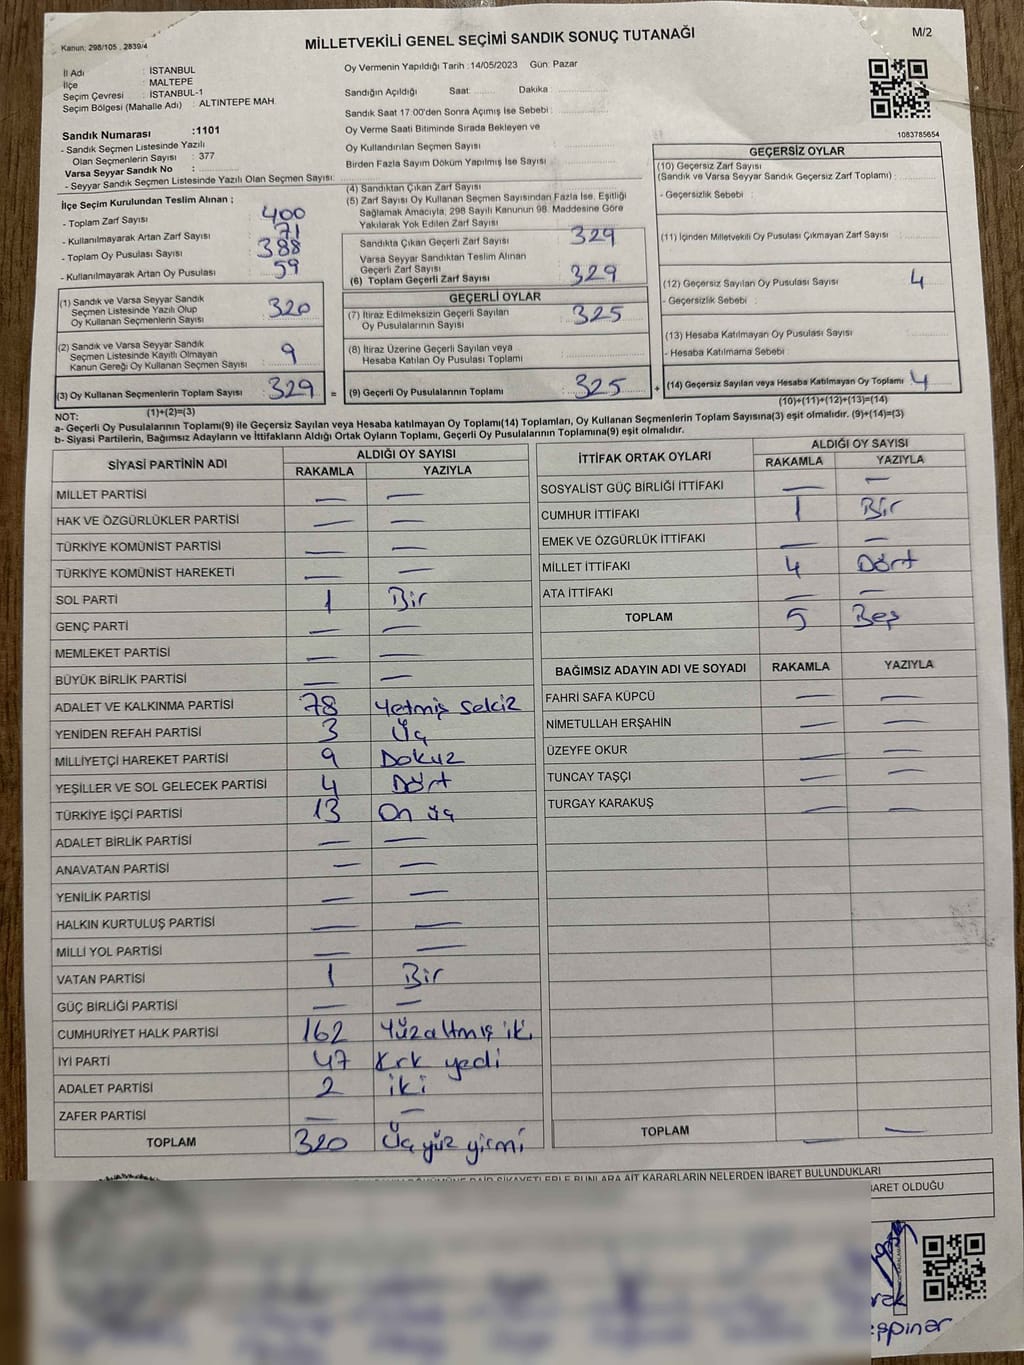 Kanun: 298/105 , 2839/4
MİLLETVEKİLİ GENEL SEÇİMİ SANDIK SONUÇ TUTANAĞI
M/2
İl Adı : İSTANBUL
İlçe : MALTEPE
Seçim Çevresi : İSTANBUL-1
Seçim Bölgesi (Mahalle Adı) : ALTINTEPE MAH.
Oy Vermenin Yapıldığı Tarih :14/05/2023 Gün: Pazar
Sandığın Açıldığı Saat: Dakika
Sandık Saat 17:00'den Sonra Açımış İse Sebebi :
Oy Verme Saati Bitiminde Sırada Bekleyen ve
Oy Kullandırılan Seçmen Sayısı
Birden Fazla Sayım Döküm Yapılmış İse Sayısı
1083785654
Sandık Numarası :1101
- Sandık Seçmen Listesinde Yazılı
Olan Seçmenlerin Sayısı : 377
Varsa Seyyar Sandık No :
- Seyyar Sandık Seçmen Listesinde Yazılı Olan Seçmen Sayısı:
İlçe Seçim Kurulundan Teslim Alınan ;
- Toplam Zarf Sayısı 400
- Kullanılmayarak Artan Zarf Sayısı 71
- Toplam Oy Pusulası Sayısı 388
- Kullanılmayarak Artan Oy Pusulası 59
(1) Sandık ve Varsa Seyyar Sandık
Seçmen Listesinde Yazılı Olup
Oy Kullanan Seçmenlerin Sayısı 320
(2) Sandık ve Varsa Seyyar Sandık
Seçmen Listesinde Kayıtlı Olmayan
Kanun Gereği Oy Kullanan Seçmen Sayısı 9
(3) Oy Kullanan Seçmenlerin Toplam Sayısı 329 =
(1)+(2)=(3)
(4) Sandıktan Çıkan Zarf Sayısı
(5) Zarf Sayısı Oy Kullanan Seçmen Sayısından Fazla İse, Eşitliği
Sağlamak Amacıyla; 298 Sayılı Kanunun 98. Maddesine Göre
Yakılarak Yok Edilen Zarf Sayısı
Sandıkta Çıkan Geçerli Zarf Sayısı 329
Varsa Seyyar Sandıktan Teslim Alınan
Geçerli Zarf Sayısı
(6) Toplam Geçerli Zarf Sayısı 329
GEÇERLİ OYLAR
(7) İtiraz Edilmeksizin Geçerli Sayılan
Oy Pusulalarının Sayısı 325
(8) İtiraz Üzerine Geçerli Sayılan veya
Hesaba Katılan Oy Pusulası Toplamı
(9) Geçerli Oy Pusulalarının Toplamı 325 +
GEÇERSİZ OYLAR
(10) Geçersiz Zarf Sayısı
(Sandık ve Varsa Seyyar Sandık Geçersiz Zarf Toplamı) :
- Geçersizlik Sebebi :
(11) İçinden Milletvekili Oy Pusulası Çıkmayan Zarf Sayısı
(12) Geçersiz Sayılan Oy Pusulası Sayısı 4
- Geçersizlik Sebebi :
(13) Hesaba Katılmayan Oy Pusulası Sayısı
- Hesaba Katılmama Sebebi
(14) Geçersiz Sayılan veya Hesaba Katılmayan Oy Toplamı 4
(10)+(11)+(12)+(13)=(14)
NOT:
a- Geçerli Oy Pusulalarının Toplamı(9) ile Geçersiz Sayılan veya Hesaba katılmayan Oy Toplamı(14) Toplamları, Oy Kullanan Seçmenlerin Toplam Sayısına(3) eşit olmalıdır. (9)+(14)=(3)
b- Siyasi Partilerin, Bağımsız Adayların ve İttifakların Aldığı Ortak Oyların Toplamı, Geçerli Oy Pusulalarının Toplamına(9) eşit olmalıdır.
SİYASİ PARTİNİN ADI
ALDIĞI OY SAYISI
RAKAMLA YAZIYLA
MİLLET PARTİSİ — —
HAK VE ÖZGÜRLÜKLER PARTİSİ — —
TÜRKİYE KOMÜNİST PARTİSİ — —
TÜRKİYE KOMÜNİST HAREKETİ — —
SOL PARTİ 1 Bir
GENÇ PARTİ — —
MEMLEKET PARTİSİ — —
BÜYÜK BİRLİK PARTİSİ — —
ADALET VE KALKINMA PARTİSİ 78 Yetmiş sekiz
YENİDEN REFAH PARTİSİ 3 Üç
MİLLİYETÇİ HAREKET PARTİSİ 9 Dokuz
YEŞİLLER VE SOL GELECEK PARTİSİ 4 Dört
TÜRKİYE İŞÇİ PARTİSİ 13 On üç
ADALET BİRLİK PARTİSİ — —
ANAVATAN PARTİSİ — —
YENİLİK PARTİSİ — —
HALKIN KURTULUŞ PARTİSİ — —
MİLLİ YOL PARTİSİ — —
VATAN PARTİSİ 1 Bir
GÜÇ BİRLİĞİ PARTİSİ — —
CUMHURİYET HALK PARTİSİ 162 Yüzaltmış iki
İYİ PARTİ 47 Kırk yedi
ADALET PARTİSİ 2 iki
ZAFER PARTİSİ — —
TOPLAM 320 Üç yüz yirmi
İTTİFAK ORTAK OYLARI
ALDIĞI OY SAYISI
RAKAMLA YAZIYLA
SOSYALİST GÜÇ BİRLİĞİ İTTİFAKI — —
CUMHUR İTTİFAKI 1 Bir
EMEK VE ÖZGÜRLÜK İTTİFAKI — —
MİLLET İTTİFAKI 4 Dört
ATA İTTİFAKI — —
TOPLAM 5 Beş
BAĞIMSIZ ADAYIN ADI VE SOYADI RAKAMLA YAZIYLA
FAHRİ SAFA KÜPCÜ — —
NİMETULLAH ERŞAHİN — —
ÜZEYFE OKUR — —
TUNCAY TAŞÇI — —
TURGAY KARAKUŞ — —
TOPLAM — —
ŞİKAYETLERLE BUNLARA AİT KARARLARIN NELERDEN İBARET BULUNDUKLARI
OLDUĞU